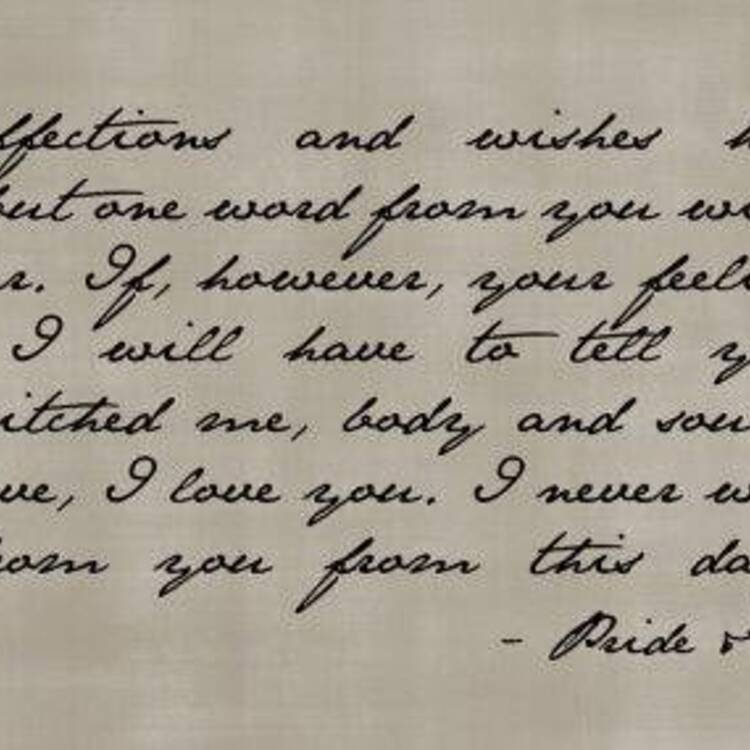 ffections and wishes h
but one word from you w
r. If, however, your feeli
I will have to tell y
itched me, body and sou
ve, I love you. I never w
rom you from this da
- Pride &